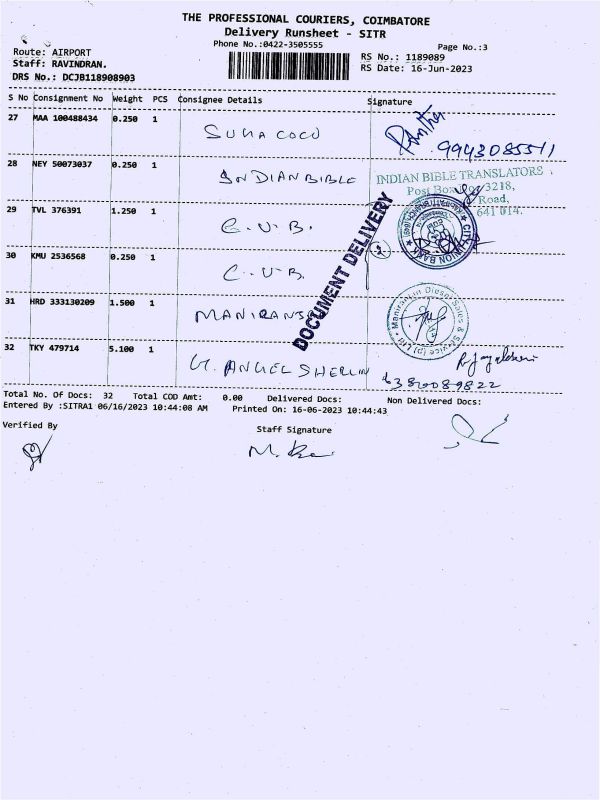 THE PROFESSIONAL COURIERS, COIMBATORE
Delivery Runsheet - SITR
Phone No.:0422-3505555 Page No.:3
Route: AIRPORT RS No.: 1189089
Staff: RAVINDRAN. RS Date: 16-Jun-2023
DRS No.: DCJB118908903
S No Consignment No Weight PCS Consignee Details Signature
27 MAA 100488434 0.250 1 SUMA COCO
9943085511
28 NEY 50073037 0.250 1 INDIAN BIBLE
INDIAN BIBLE TRANSLATORS
Post Box No. 3218,
Road,
641 014.
29 TVL 376391 1.250 1 C.U.B.
CITY UNION BANK
30 KMU 2536568 0.250 1 C.U.B.
DOCUMENT DELIVERY
31 HRD 333130209 1.500 1
Maniranjan Diesel Sales & Service (P) Ltd
32 TKY 479714 5.100 1 G. ANGEL SHERLIN
6380089822
Total No. Of Docs: 32 Total COD Amt: 0.00 Delivered Docs: Non Delivered Docs:
Entered By :SITRA1 06/16/2023 10:44:08 AM Printed On: 16-06-2023 10:44:43
Verified By Staff Signature